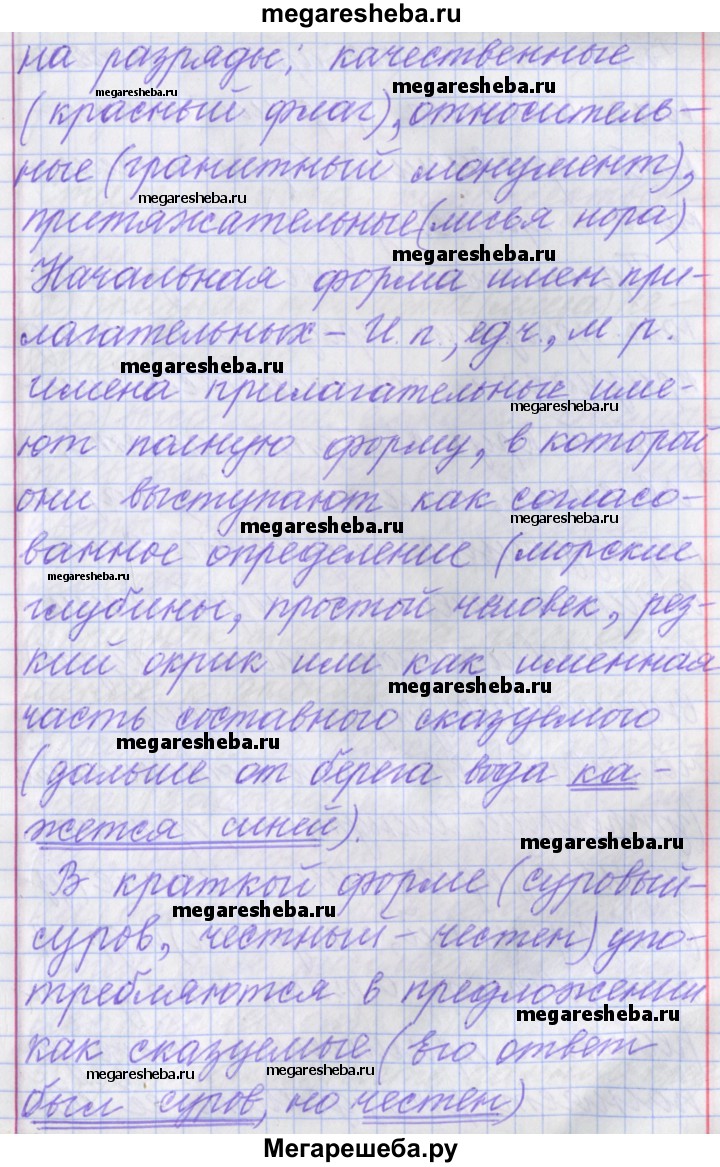 megaresheba.ru
на разряды: качественные
megaresheba.ru megaresheba.ru
(красный флаг), относитель-
ные (гранитный монумент),
megaresheba.ru
притяжательные (лисья нора)
megaresheba.ru
Начальная форма имен при-
лагательных – И. п., ед.ч., м. р.
megaresheba.ru
имена прилагательные име-
megaresheba.ru
ют полную форму, в которой
они выступают как согласо-
megaresheba.ru megaresheba.ru
ванное определение (морские
megaresheba.ru
глубины, простой человек, рез-
кий окрик или как именная
megaresheba.ru
часть составного сказуемого
megaresheba.ru
(дальше от берега вода ка-
жется синей).
megaresheba.ru
В краткой форме (суровый-
megaresheba.ru
суров, честный – честен) упо-
требляются в предложении
megaresheba.ru
как сказуемые (Его ответ
megaresheba.ru megaresheba.ru
был суров, но честен)
Мегарешеба.ру